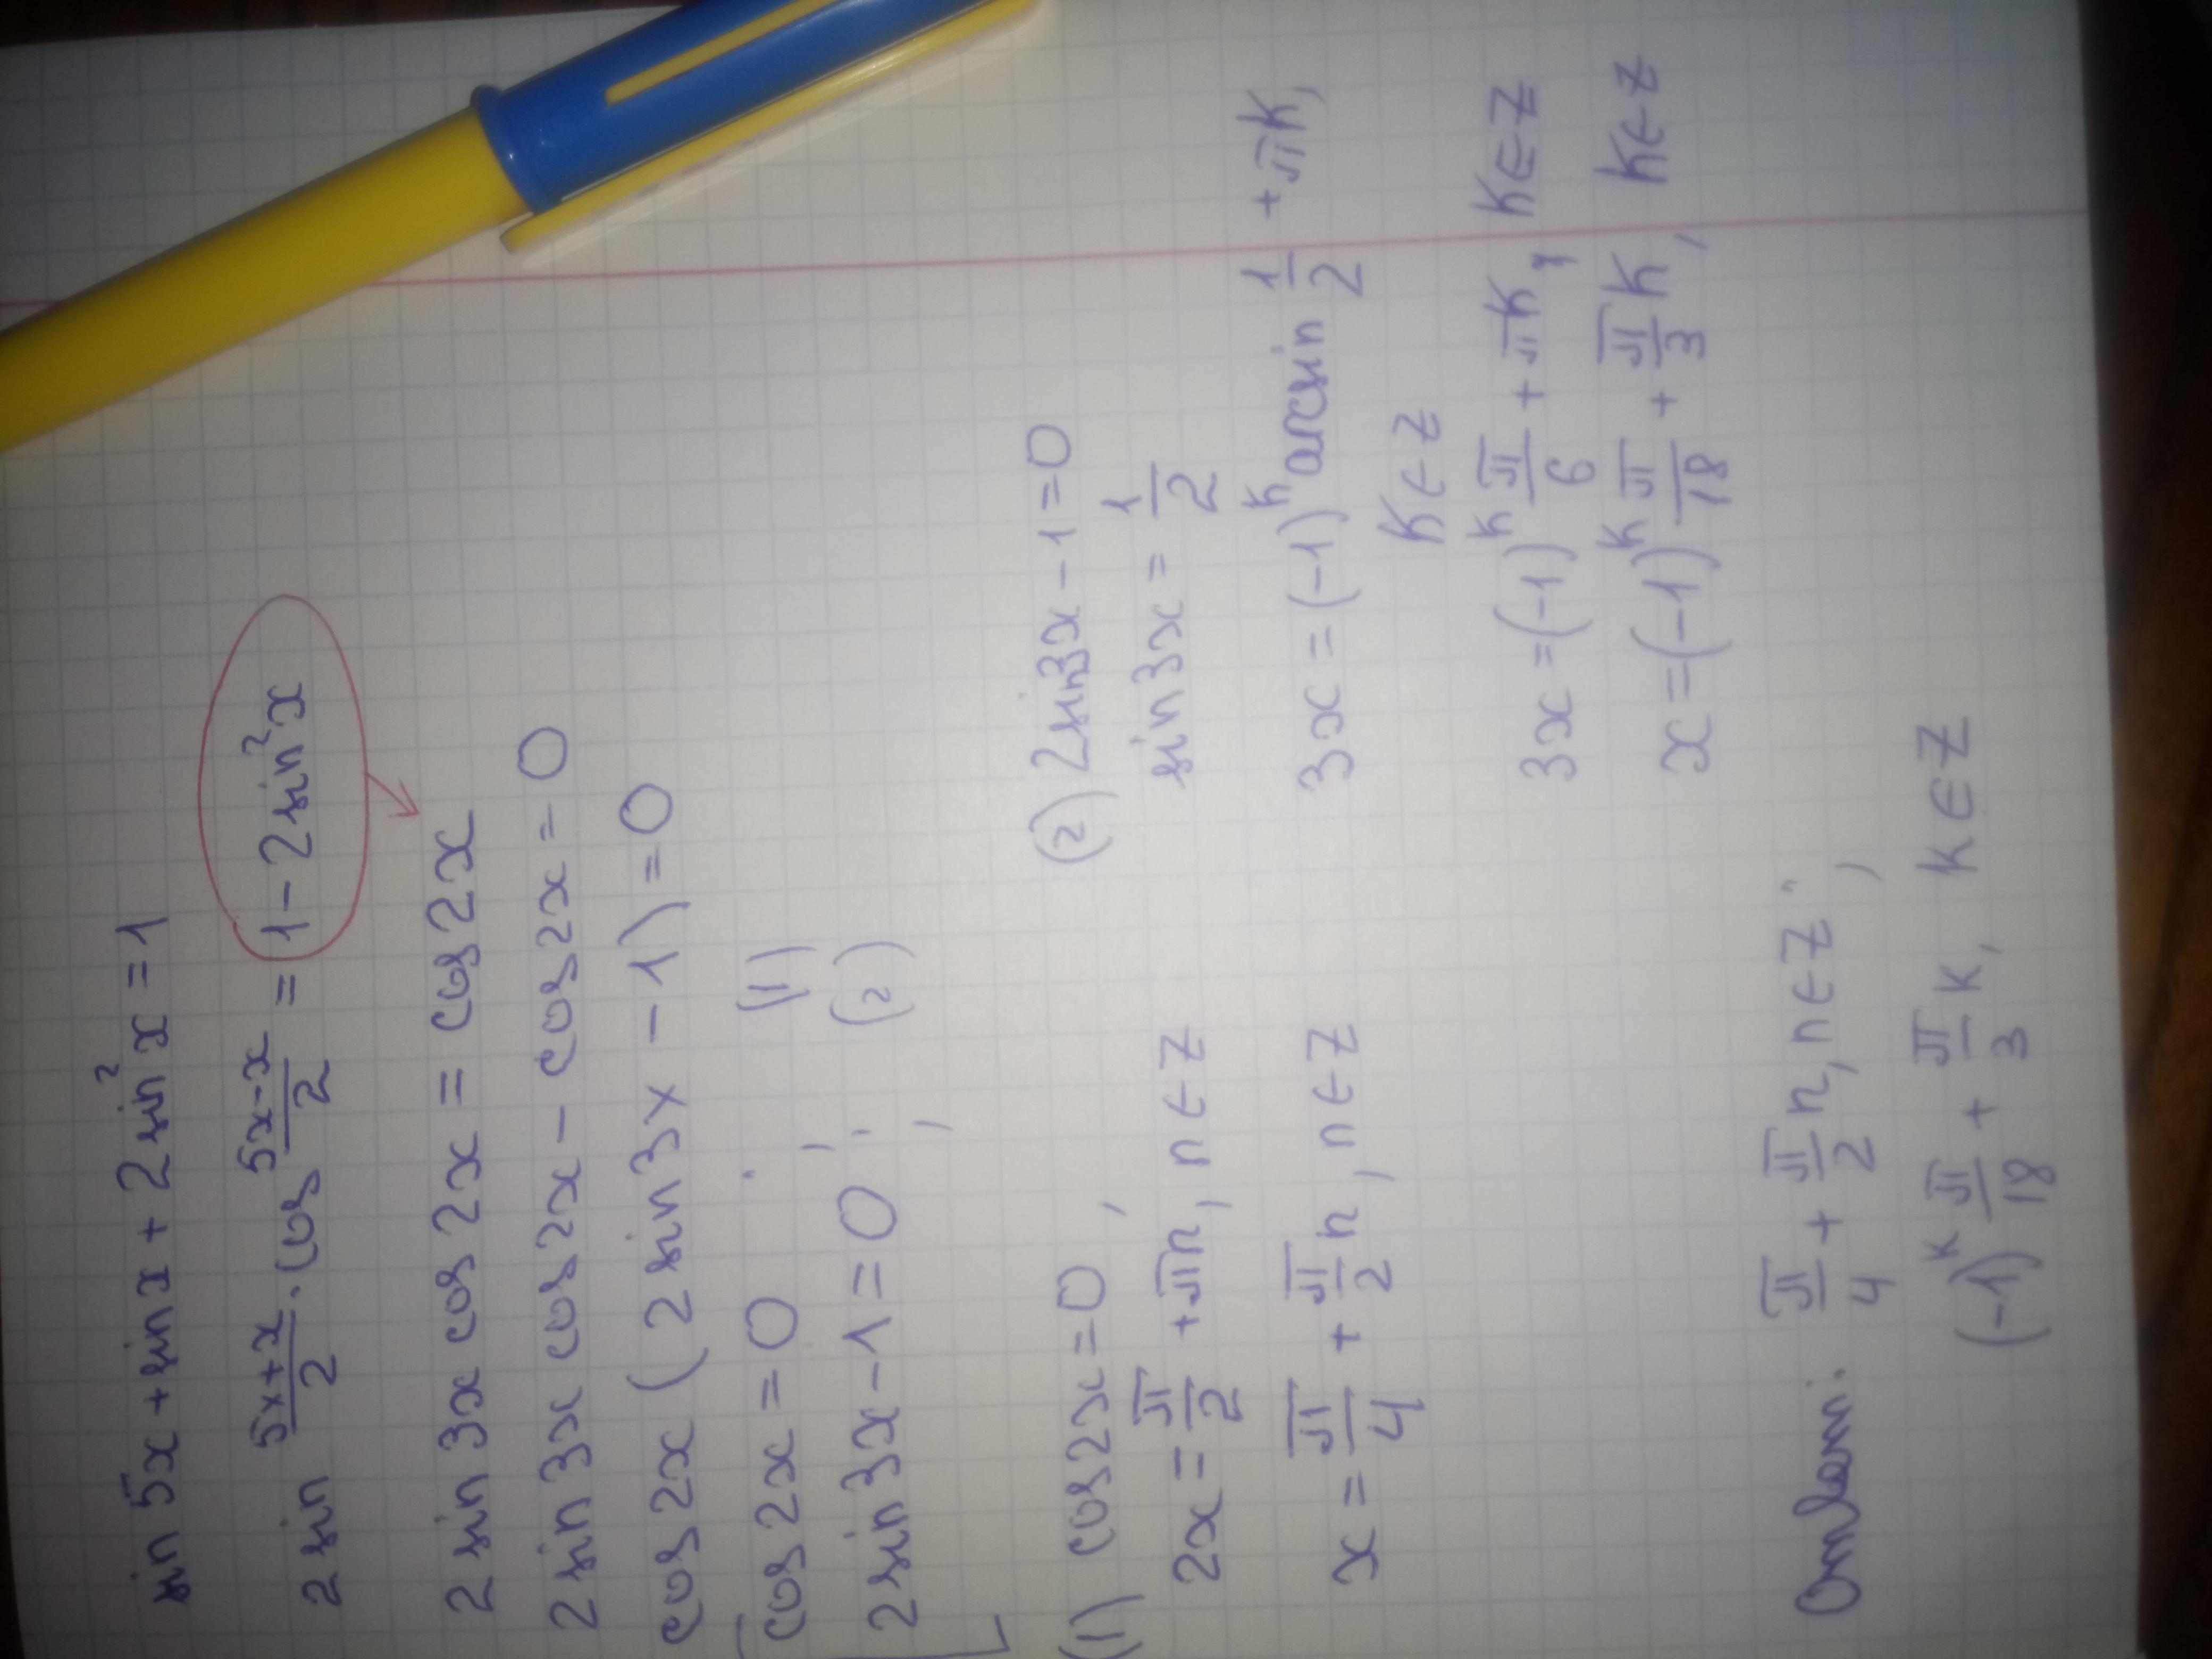 sin 5x + sin x + 2 sin² x = 1
2 sin (5x+x)/2 · cos (5x-x)/2 = 1 - 2 sin² x
2 sin 3x cos 2x = cos 2x
2 sin 3x cos 2x - cos 2x = 0
cos 2x (2 sin 3x - 1) = 0
[ cos 2x = 0 ; (1)
2 sin 3x - 1 = 0 ; (2)
(1) cos 2x = 0,
2x = π/2 + πn, n ∈ Z
x = π/4 + π/2 n, n ∈ Z
(2) 2 sin 3x - 1 = 0
sin 3x = 1/2
3x = (-1)^k arcsin 1/2 + πk,
k ∈ Z
3x = (-1)^k π/6 + πk, k ∈ Z
x = (-1)^k π/18 + π/3 k, k ∈ Z
Ответ: π/4 + π/2 n, n ∈ Z ;
(-1)^k π/18 + π/3 k, k ∈ Z